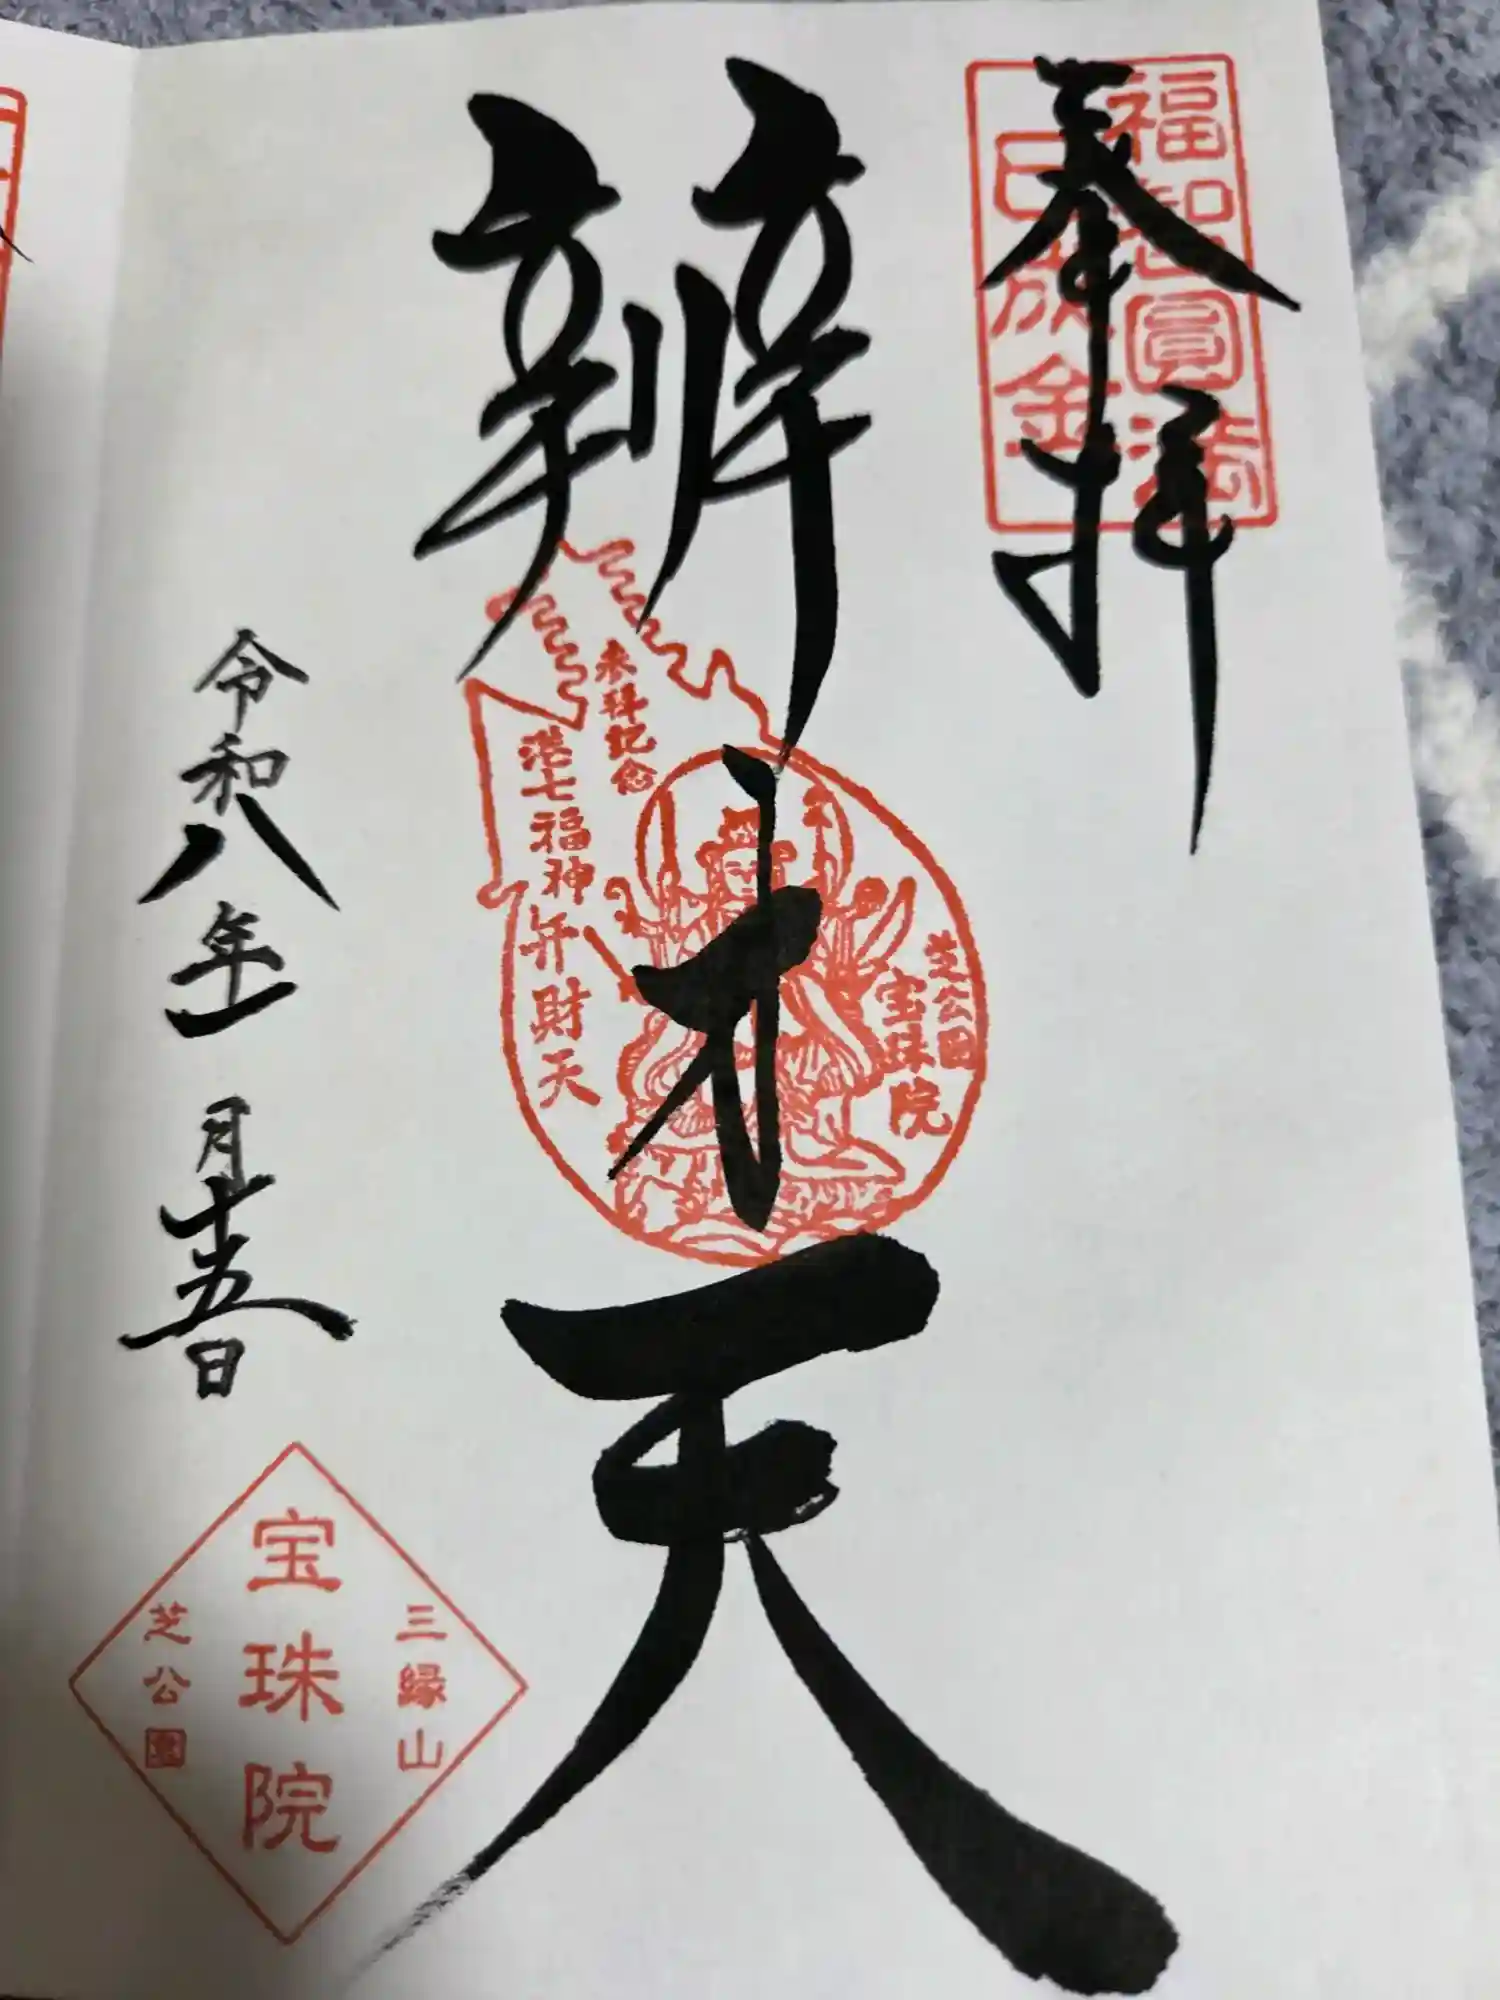 奉拝
福智圓満
日成金
辨才天
来拝記念
港七福神
弁財天
芝公園
宝珠院
令和八年一月十五日
三縁山
宝珠院
芝公園